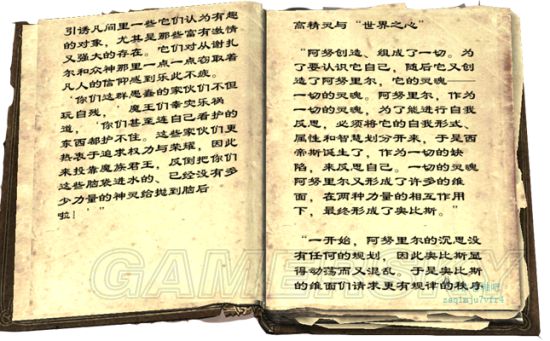 引诱凡间里一些它们认为有趣
的对象，尤其是那些富有激情
又强大的存在。它们对从谢扎
尔和众神那里一点一点窃取着
凡人的信仰感到乐此不疲。
‘你们这群愚蠢的家伙们不但
玩自残，’魔王们幸灾乐祸
道，‘你们甚至连自己看护的
东西都护不住。这些家伙们更
热衷于追求权力与荣耀，因此
来投靠魔族君王，反倒把你们
这些脑袋进水的、已经没有多
少力量的神灵给抛到脑后
啦！’”
高精灵与“世界之心”
“阿努创造，组成了一切。为
了要认识它自己，随后它又创
造了阿努里尔，它的灵魂——
一切的灵魂。阿努里尔，作为
一切的灵魂，为了能进行自我
反思，必须将它的自我形式、
属性和智慧划分开来，于是西
帝斯诞生了，作为一切的缺
陷，来反思自己。一切的灵魂
阿努里尔又形成了许多的维
面，在两种力量的相互作用
下，最终形成了奥比斯。
“一开始，阿努里尔的沉思没
有任何的规划，因此奥比斯显
得动荡而又混乱。于是奥比斯
的维面们请求更有规律的秩序
GAMERSKY
zaq1mju7vfr4